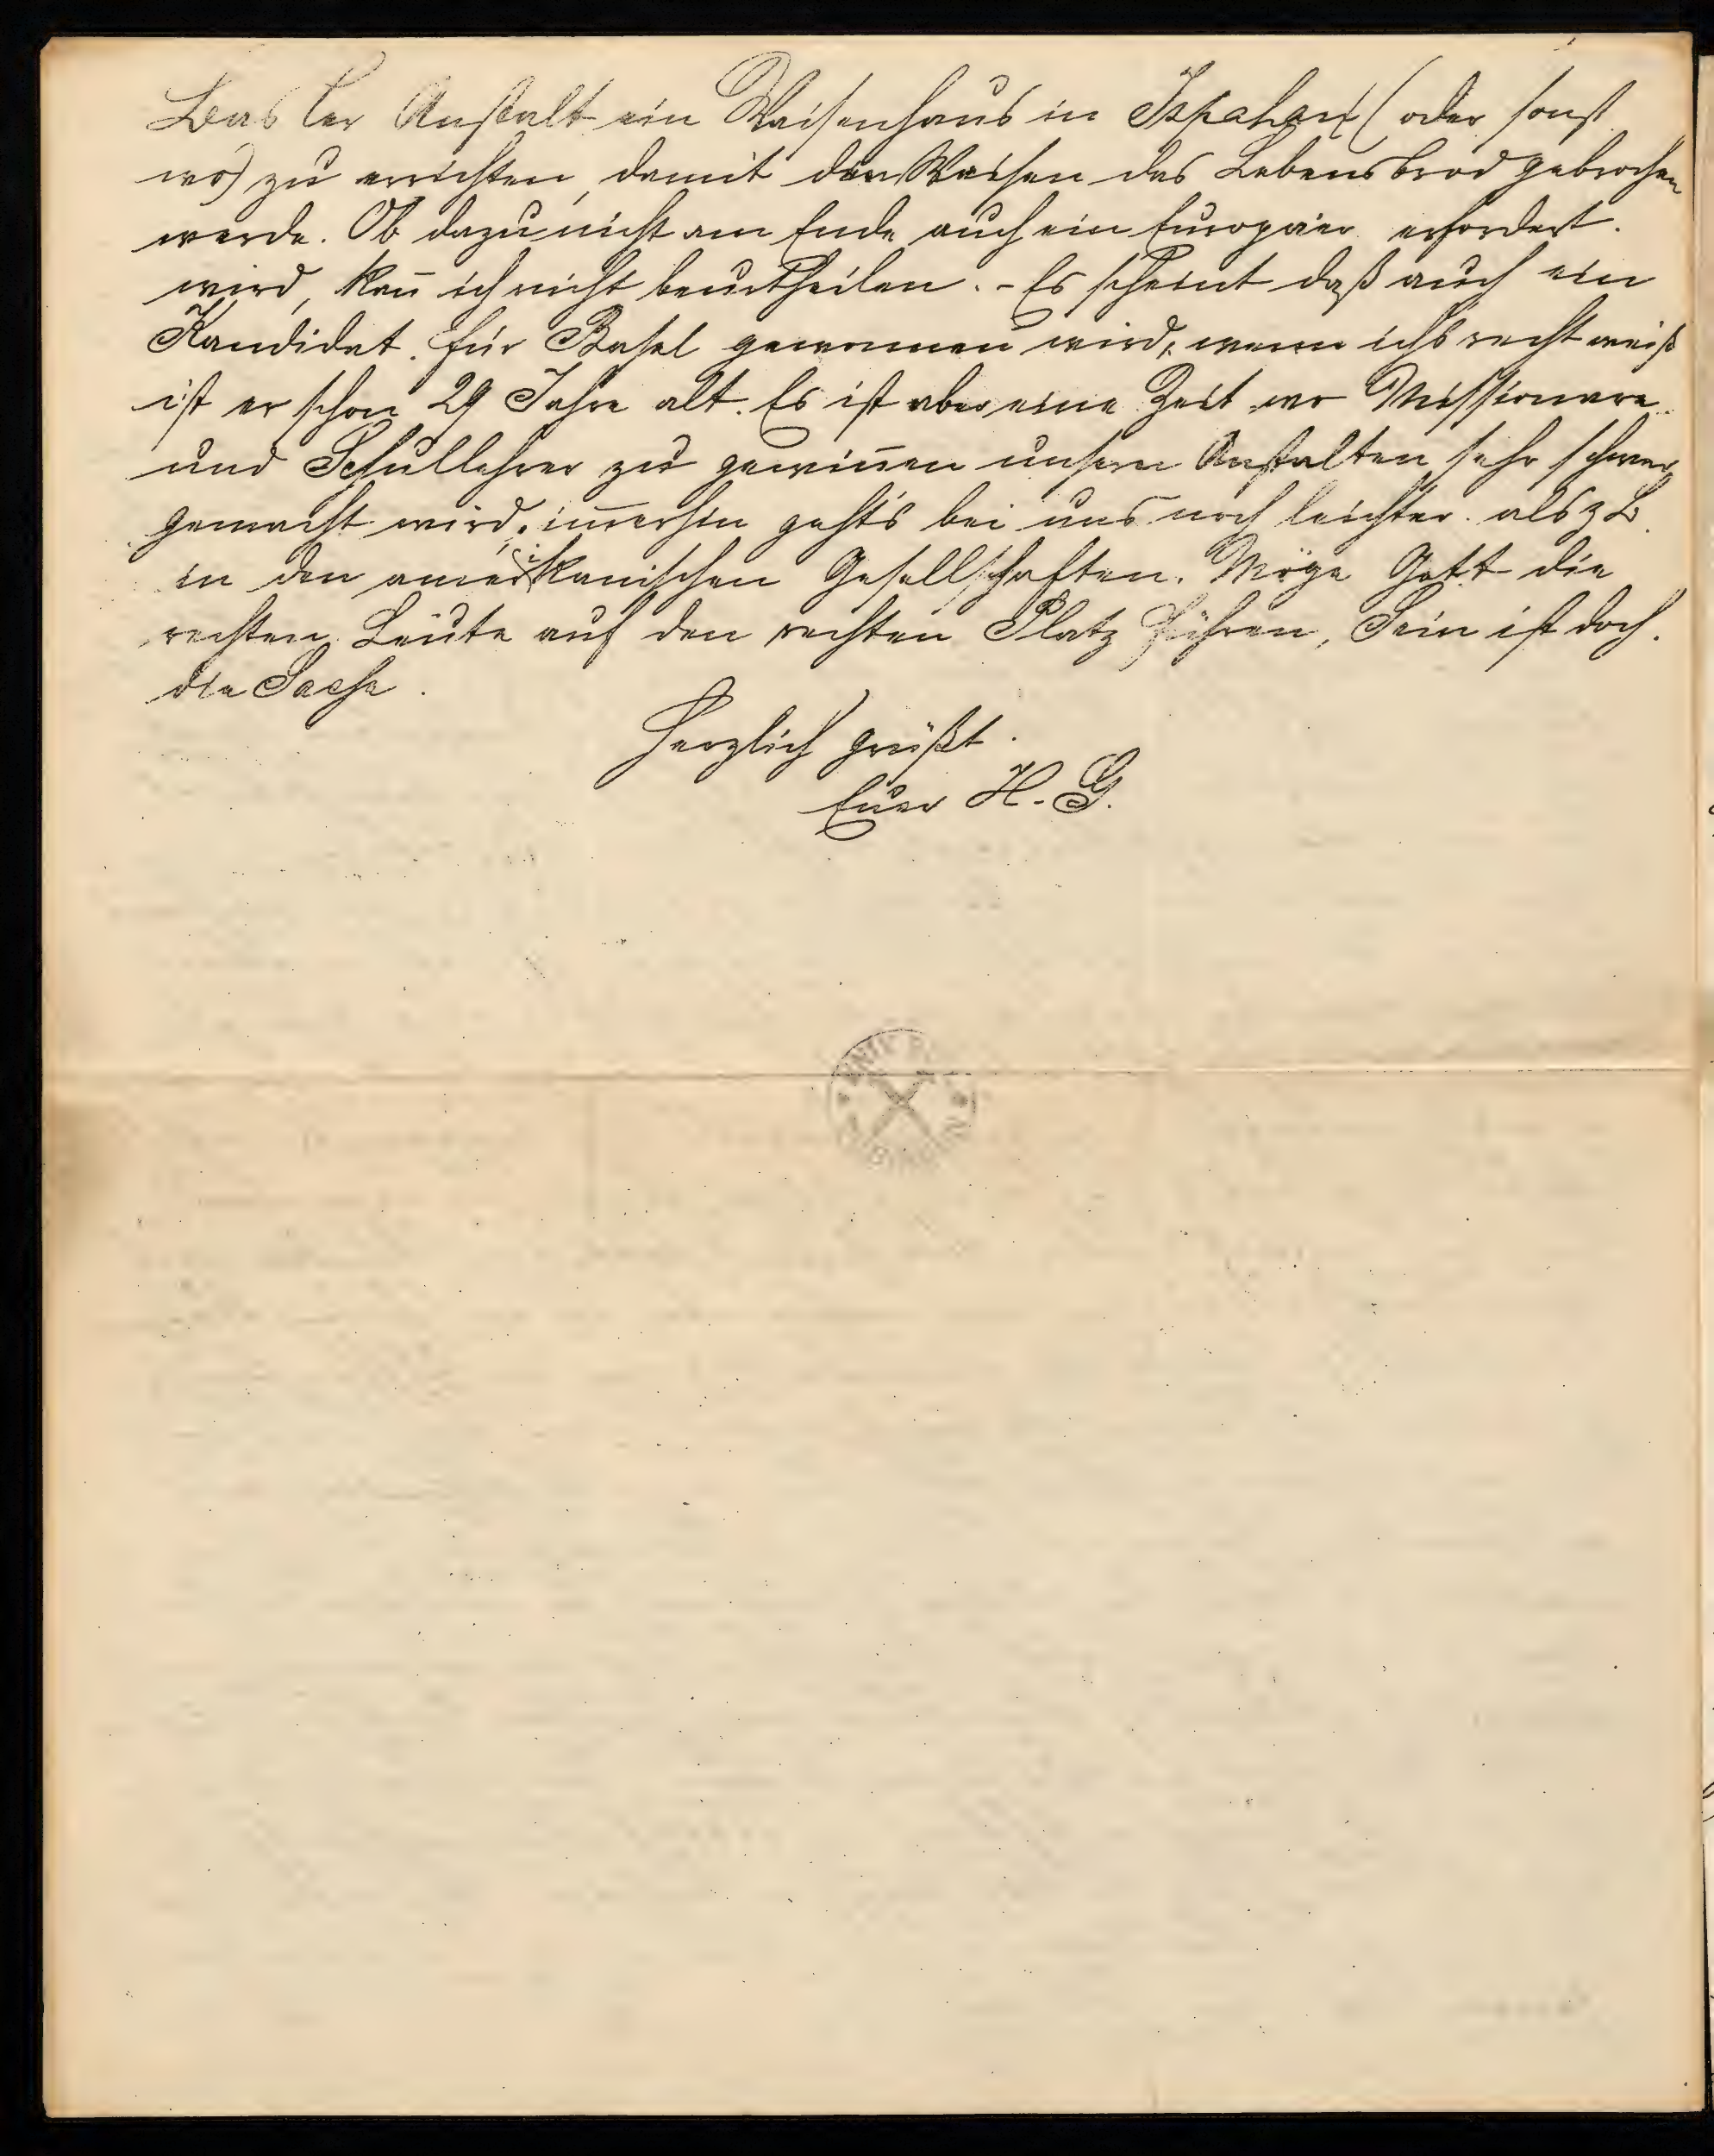 Basler Anstalt ein Waisenhaus in Ispahan (oder sonst
wo) zu errichten, damit den Waisen das Lebensbrod gebrochen
werde. Ob dazu nicht am Ende auch ein Europäer erfordert
wird, kan̄ ich nicht beurtheilen. - Es scheint daß auch ein
Kandidat für Basel gewonnen wird, wenn ichs recht weiß
ist er schon 29 Jahre alt. Es ist aber eine Zeit wo Missionare
und Schullehrer zu gewin̄en unsern Anstalten sehr schwer
gemacht wird, im̄erhin gehts bei uns noch leichter als z B.
in den amerikanischen Gesellschaften. Möge Gott die
rechten Leute auf den rechten Platz führen, Sein ist doch
die Sache.
Herzlich grüßt
Euer H. G.